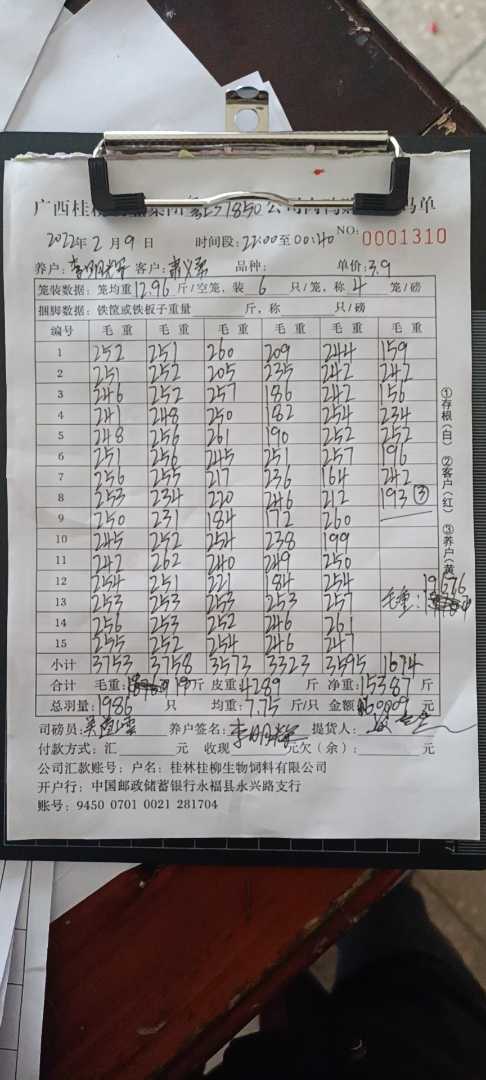 广西桂 集团 公司肉鸭 码单
2022年2月9日 时间段:22:00至00:40 NO:0001310
养户: 客户: 品种: 单价:3.9
笼装数据:笼均重12.96斤/空笼,装6只/笼,称4笼/磅
捆脚数据:铁筐或铁板子重量 斤,称 只/磅
编号 毛重 毛重 毛重 毛重 毛重 毛重
1 252 251 260 209 244 159
2 251 252 205 235 242 242
3 246 252 257 186 242 156
4 241 248 250 182 254 234
5 248 256 261 190 252 252
6 251 256 245 251 257 196
7 256 255 217 236 164 242
8 253 234 220 246 212 193 ③
9 250 231 184 172 260
10 245 252 254 238 199
11 242 262 240 249 250
12 254 251 221 184 254
13 253 253 253 253 257
14 256 253 252 246 261
15 255 252 254 246 247
小计 3753 3758 3573 3323 3595 1674
毛重:19676
合计 毛重: 斤 皮重:4289 斤 净重:15387 斤
总羽量:1986 只 均重:7.75 斤/只 金额:60009 元
司磅员: 养户签名: 提货人:
付款方式:汇 元 收现 元欠(余): 元
公司汇款账号:户名:桂林桂柳生物饲料有限公司
开户行:中国邮政储蓄银行永福县永兴路支行
账号:9450 0701 0021 281704
①存根(白) ②客户(红) ③养户(黄